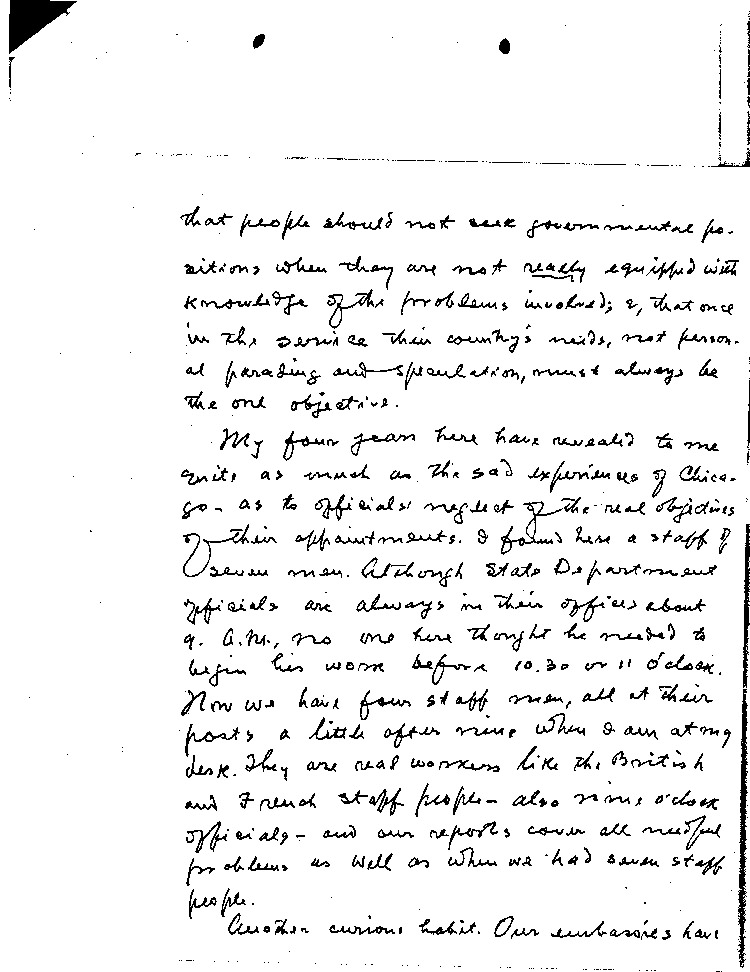 that people should not seek governmental po-
sitions when they are not really equipped with
knowledge of the problems involved; &, that once
in the service their country's needs, not person-
al parading and speculation, must always be
the one objective.
My four years here have revealed to me
quite as much as the sad experiences of Chica-
go - as to officials' neglect of the real objectives
of their appointments. I found here a staff of
seven men. Although State Department
officials are always in their offices about
9. A.M., no one here thought he needed to
begin his work before 10.30 or 11 o'clock.
Now we have four staff men, all at their
posts a little after nine when I am at my
desk. They are real workers like the British
and French staff people - also nine o'clock
officials - and our reports cover all needful
problems as well as when we had seven staff
people.
Another curious habit. Our embassies have